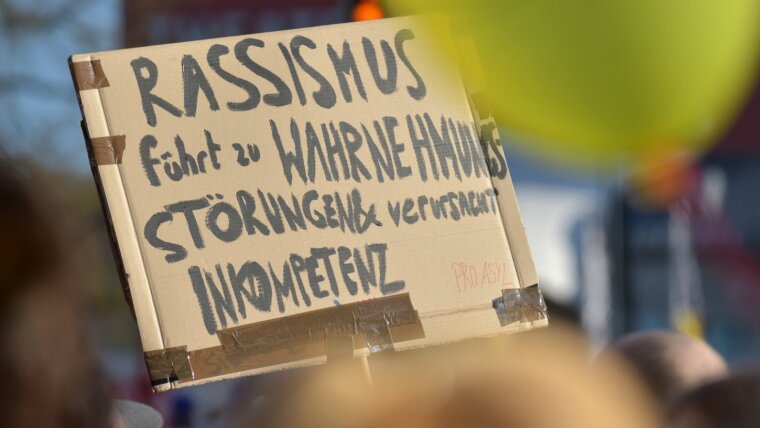 RASSISMUS
führt zu WAHRNEHMUNGS
STÖRUNGEN & verursacht
INKOMPETENZ
PRO ASYL